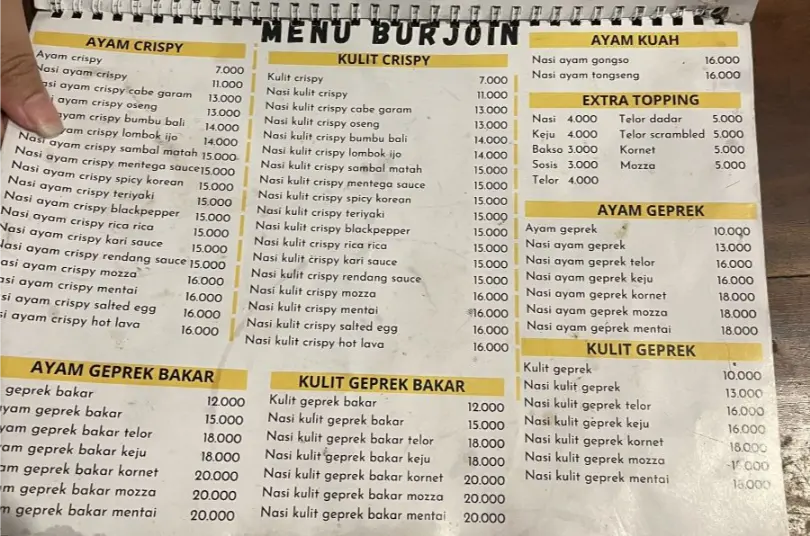 MENU BURJOIN
AYAM CRISPY
Ayam crispy 7.000
Nasi ayam crispy 11.000
asi ayam crispy cabe garam 13.000
i ayam crispy oseng 13.000
ayam crispy bumbu bali 14.000
yam crispy lombok ijo 14.000
Nasi ayam crispy sambal matah 15.000
Nasi ayam crispy mentega sauce 15.000
Nasi ayam crispy spicy korean 15.000
Nasi ayam crispy teriyaki 15.000
Nasi ayam crispy blackpepper 15.000
Nasi ayam crispy rica rica 15.000
Nasi ayam crispy kari sauce 15.000
Nasi ayam crispy rendang sauce 15.000
asi ayam crispy mozza 16.000
asi ayam crispy mentai 16.000
si ayam crispy salted egg 16.000
si ayam crispy hot lava 16.000
KULIT CRISPY
Kulit crispy 7.000
Nasi kulit crispy 11.000
Nasi kulit crispy cabe garam 13.000
Nasi kulit crispy oseng 13.000
Nasi kulit crispy bumbu bali 14.000
Nasi kulit crispy lombok ijo 14.000
Nasi kulit crispy sambal matah 15.000
Nasi kulit crispy mentega sauce 15.000
Nasi kulit crispy spicy korean 15.000
Nasi kulit crispy teriyaki 15.000
Nasi kulit crispy blackpepper 15.000
Nasi kulit crispy rica rica 15.000
Nasi kulit crispy kari sauce 15.000
Nasi kulit crispy rendang sauce 15.000
Nasi kulit crispy mozza 16.000
Nasi kulit crispy mentai 16.000
Nasi kulit crispy salted egg 16.000
Nasi kulit crispy hot lava 16.000
AYAM KUAH
Nasi ayam gongso 16.000
Nasi ayam tongseng 16.000
EXTRA TOPPING
Nasi 4.000 Telor dadar 5.000
Keju 4.000 Telor scrambled 5.000
Bakso 3.000 Kornet 5.000
Sosis 3.000 Mozza 5.000
Telor 4.000
AYAM GEPREK
Ayam geprek 10.000
Nasi ayam geprek 13.000
Nasi ayam geprek telor 16.000
Nasi ayam geprek keju 16.000
Nasi ayam geprek kornet 18.000
Nasi ayam geprek mozza 18.000
Nasi ayam geprek mentai 18.000
KULIT GEPREK
Kulit geprek 10.000
Nasi kulit geprek 13.000
Nasi kulit geprek telor 16.000
Nasi kulit geprek keju 16.000
Nasi kulit geprek kornet 18.000
Nasi kulit geprek mozza
Nasi kulit geprek mentai 18.000
AYAM GEPREK BAKAR
geprek bakar 12.000
yam geprek bakar 15.000
yam geprek bakar telor 18.000
yam geprek bakar keju 18.000
am geprek bakar kornet 20.000
m geprek bakar mozza 20.000
m geprek bakar mentai 20.000
KULIT GEPREK BAKAR
Kulit geprek bakar 12.000
Nasi kulit geprek bakar 15.000
Nasi kulit geprek bakar telor 18.000
Nasi kulit geprek bakar keju 18.000
Nasi kulit geprek bakar kornet 20.000
Nasi kulit geprek bakar mozza 20.000
Nasi kulit geprek bakar mentai 20.000